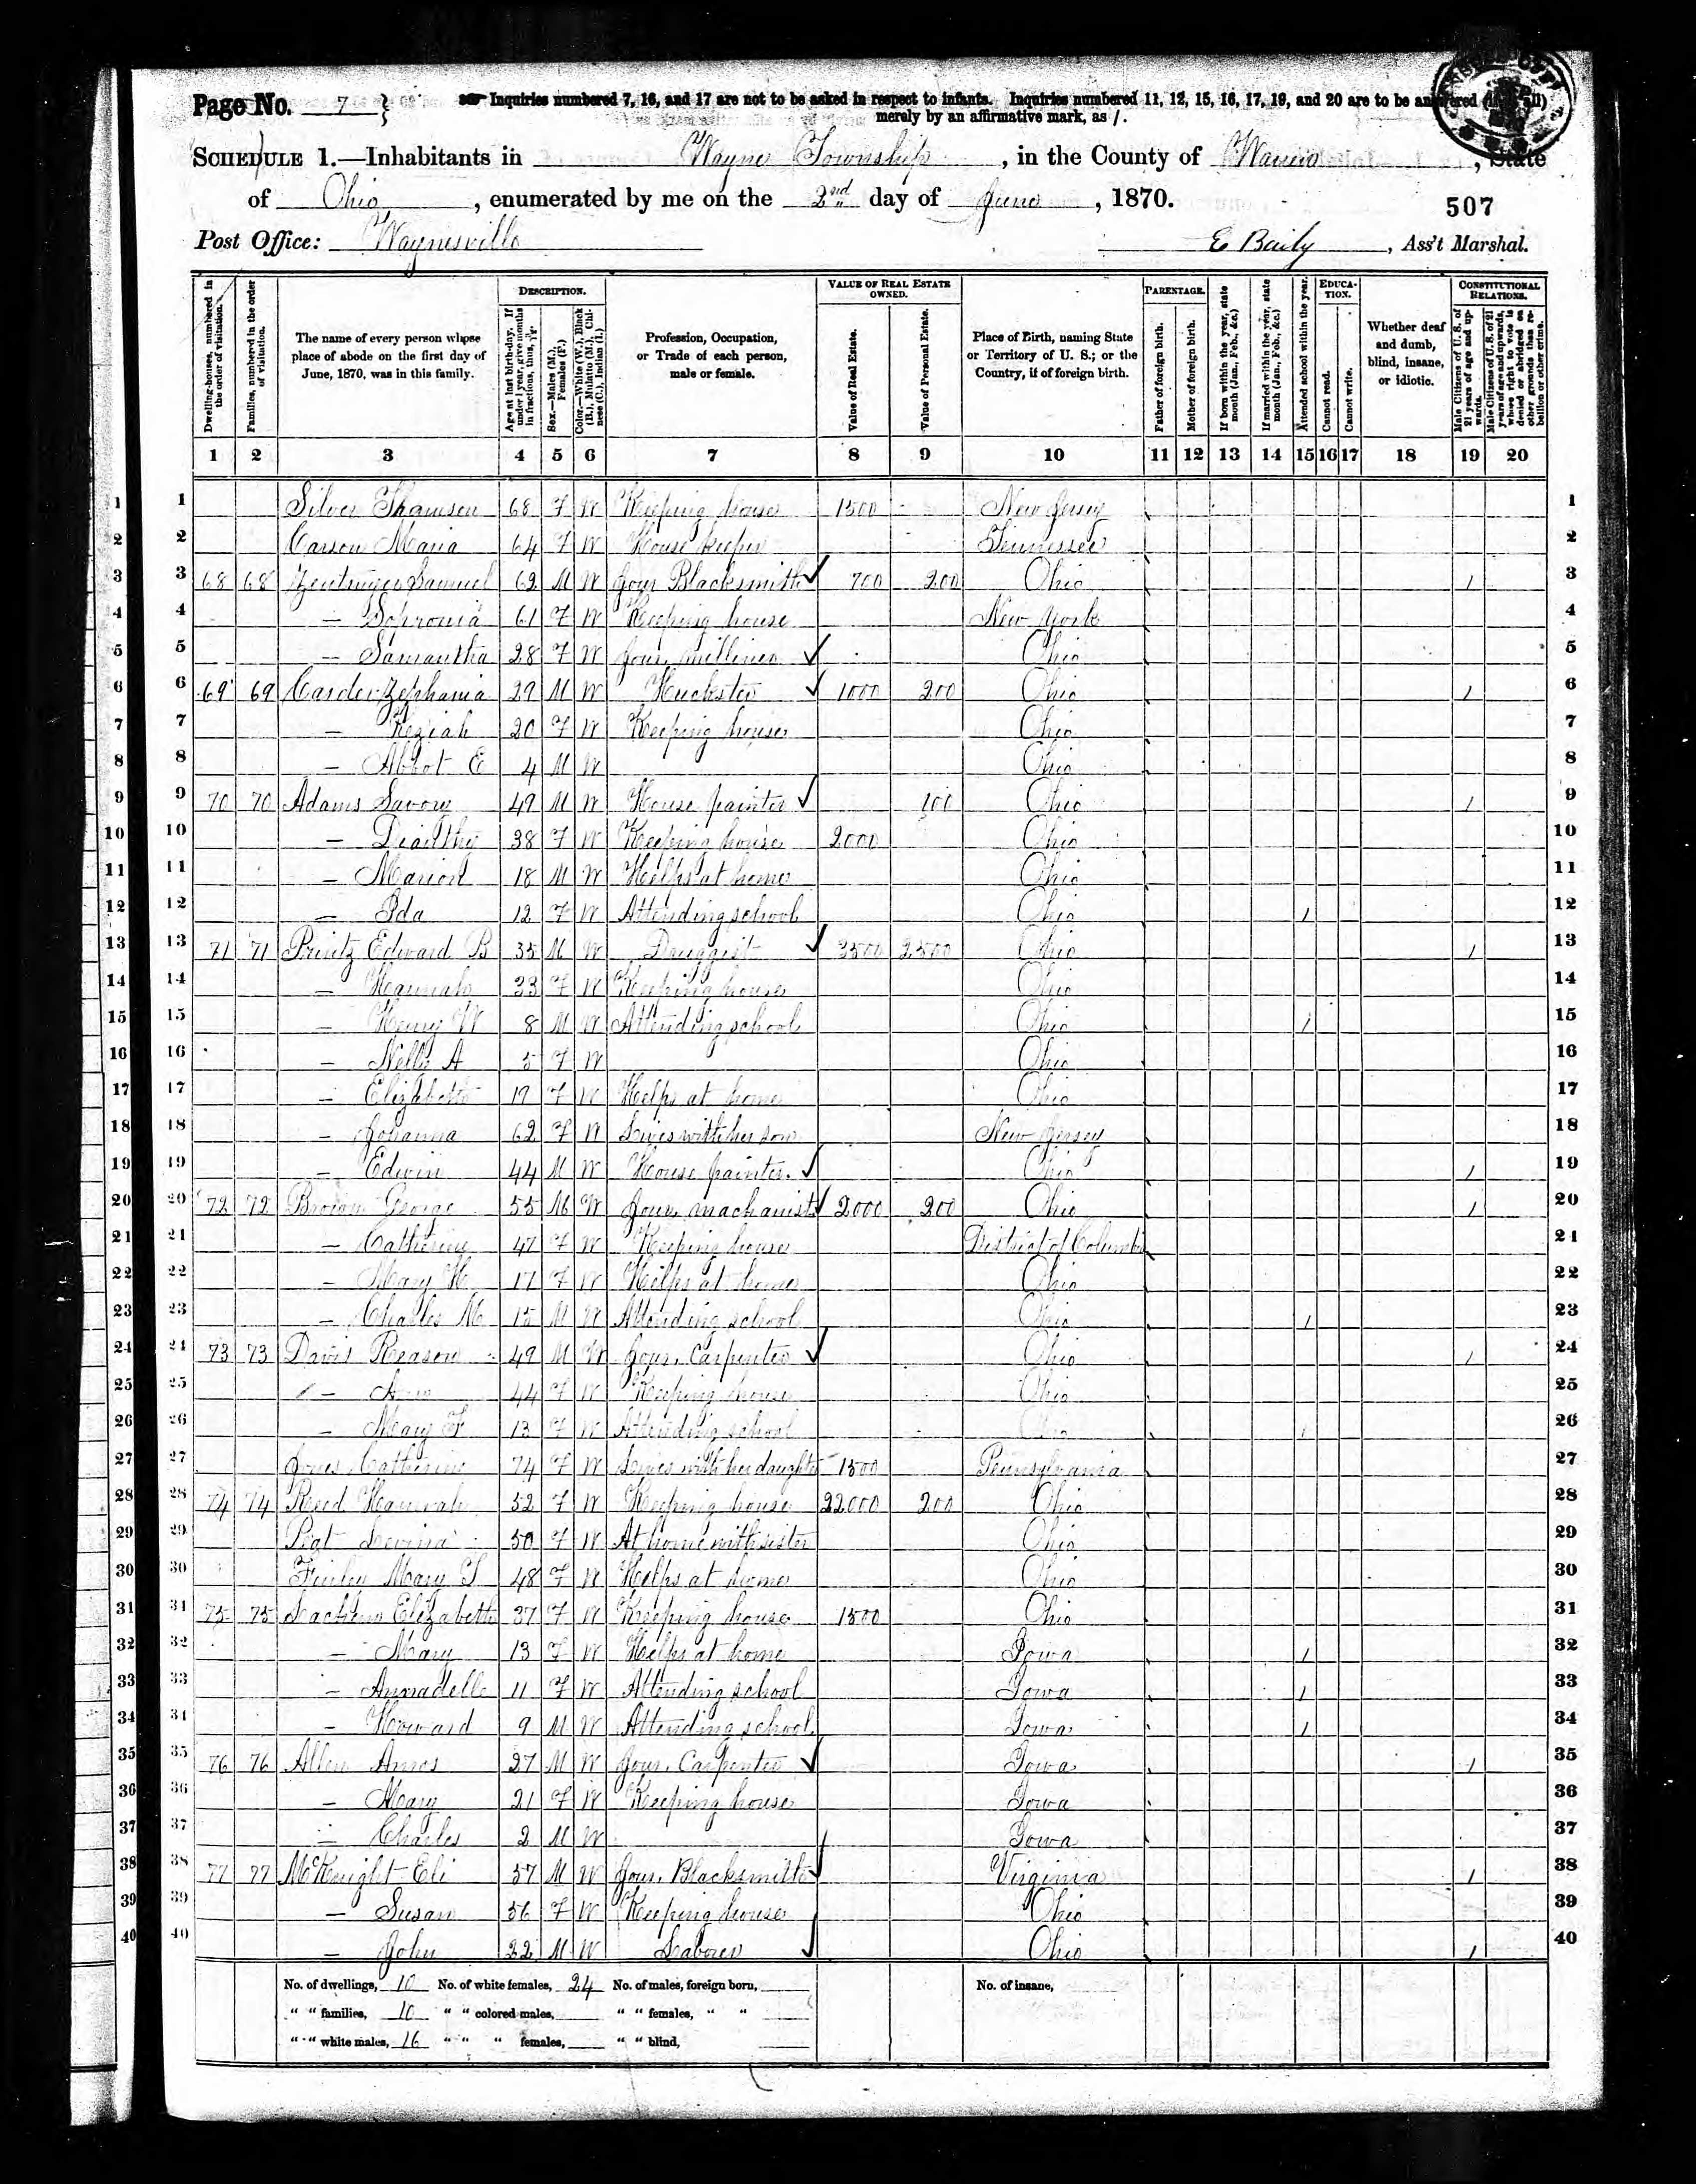 Page No. 7 }
Inquiries numbered 7, 16, and 17 are not to be asked in respect to infants. Inquiries numbered 11, 12, 15, 16, 17, 19, and 20 are to be answered (if at all)
merely by an affirmative mark, as /.
SCHEDULE 1.—Inhabitants in Wayne Township, in the County of Warren, State
of Ohio, enumerated by me on the 2nd day of June, 1870.
507
Post Office: Waynesville E Baily, Ass't Marshal.
Dwelling-houses, numbered in the order of visitation.
Families, numbered in the order of visitation.
The name of every person whose place of abode on the first day of June, 1870, was in this family.
DESCRIPTION.
Age at last birth-day. If under 1 year, give months in fractions, thus,
Sex.—Males (M.), Females (F.)
Color.—White (W.), Black (B.), Mulatto (M.), Chinese (C.), Indian (I.)
Profession, Occupation, or Trade of each person, male or female.
VALUE OF REAL ESTATE OWNED.
Value of Real Estate.
Value of Personal Estate.
Place of Birth, naming State or Territory of U. S.; or the Country, if of foreign birth.
PARENTAGE.
Father of foreign birth.
Mother of foreign birth.
If born within the year, state month (Jan., Feb., &c.)
If married within the year, state month (Jan., Feb., &c.)
Attended school within the year.
EDUCATION.
Cannot read.
Cannot write.
Whether deaf and dumb, blind, insane, or idiotic.
CONSTITUTIONAL RELATIONS.
Male Citizens of U. S. of 21 years of age and upwards.
Male Citizens of U. S. of 21 years of age and upwards, whose right to vote is denied or abridged on other grounds than rebellion or other crime.
1 2 3 4 5 6 7 8 9 10 11 12 13 14 15 16 17 18 19 20
1 Silver 68 F W Keeping house 1500 New Jersey 1
2 Carson Maria 64 F W House keeper Tennessee 2
3 68 68 Samuel 62 M W Jour Blacksmith 700 200 Ohio / 3
4 — Sophronia 61 F W Keeping house New York 4
5 — Samantha 28 F W Jour. milliner Ohio 5
6 69 69 Carder Zephania 29 M W Huckster 1000 200 Ohio / 6
7 — Keziah 20 F W Keeping house Ohio 7
8 — Abbot E 4 M W Ohio 8
9 70 70 Adams 49 M W House painter 100 Ohio / 9
10 — 38 F W Keeping house 2000 Ohio 10
11 — Marion 18 M W Helps at home Ohio 11
12 — Ida 12 F W Attending school Ohio / 12
13 71 71 Printz Edward B 35 M W Druggist 3500 2500 Ohio / 13
14 — Hannah 33 F W Keeping house Ohio 14
15 — Henry W 8 M W Attending school Ohio / 15
16 — Nelly A 5 F W Ohio 16
17 — Elizabeth 19 F W Helps at home Ohio 17
18 — Johanna 62 F W Lives with her son New Jersey 18
19 — Edwin 44 M W House painter. Ohio / 19
20 72 72 Brown George 55 M W Jour. machanist 2000 200 Ohio / 20
21 — Catherine 47 F W Keeping house District of Columbia 21
22 — Mary H 17 F W Helps at home Ohio 22
23 — Charles M 15 M W Attending school Ohio / 23
24 73 73 Davis Reason 49 M W Jour. Carpenter Ohio / 24
25 — Ann 44 F W Keeping house Ohio 25
26 — Mary F 13 F W Attending school Ohio / 26
27 Jones Catherine 74 F W Lives with her daughter 1500 Pennsylvania 27
28 74 74 Reed Hannah 52 F W Keeping house 22000 200 Ohio 28
29 Lovina 50 F W At home with sister Ohio 29
30 Finley Mary S 48 F W Helps at home Ohio 30
31 75 75 Elizabeth 37 F W Keeping house 1500 Ohio 31
32 — Mary 13 F W Helps at home Iowa / 32
33 — Annadelle 11 F W Attending school Iowa / 33
34 — Howard 9 M W Attending school Iowa / 34
35 76 76 Allen Amos 27 M W Jour. Carpenter Iowa / 35
36 — Mary 21 F W Keeping house Iowa 36
37 — Charles 2 M W Iowa 37
38 77 77 McKnight Eli 57 M W Jour. Blacksmith Virginia / 38
39 — Susan 56 F W Keeping house Ohio 39
40 — John 22 M W Laborer Ohio / 40
No. of dwellings, 10 No. of white females, 24 No. of males, foreign born, No. of insane,
" " families, 10 " " colored males, " " females, " "
" " white males, 16 " " " females, " " blind,